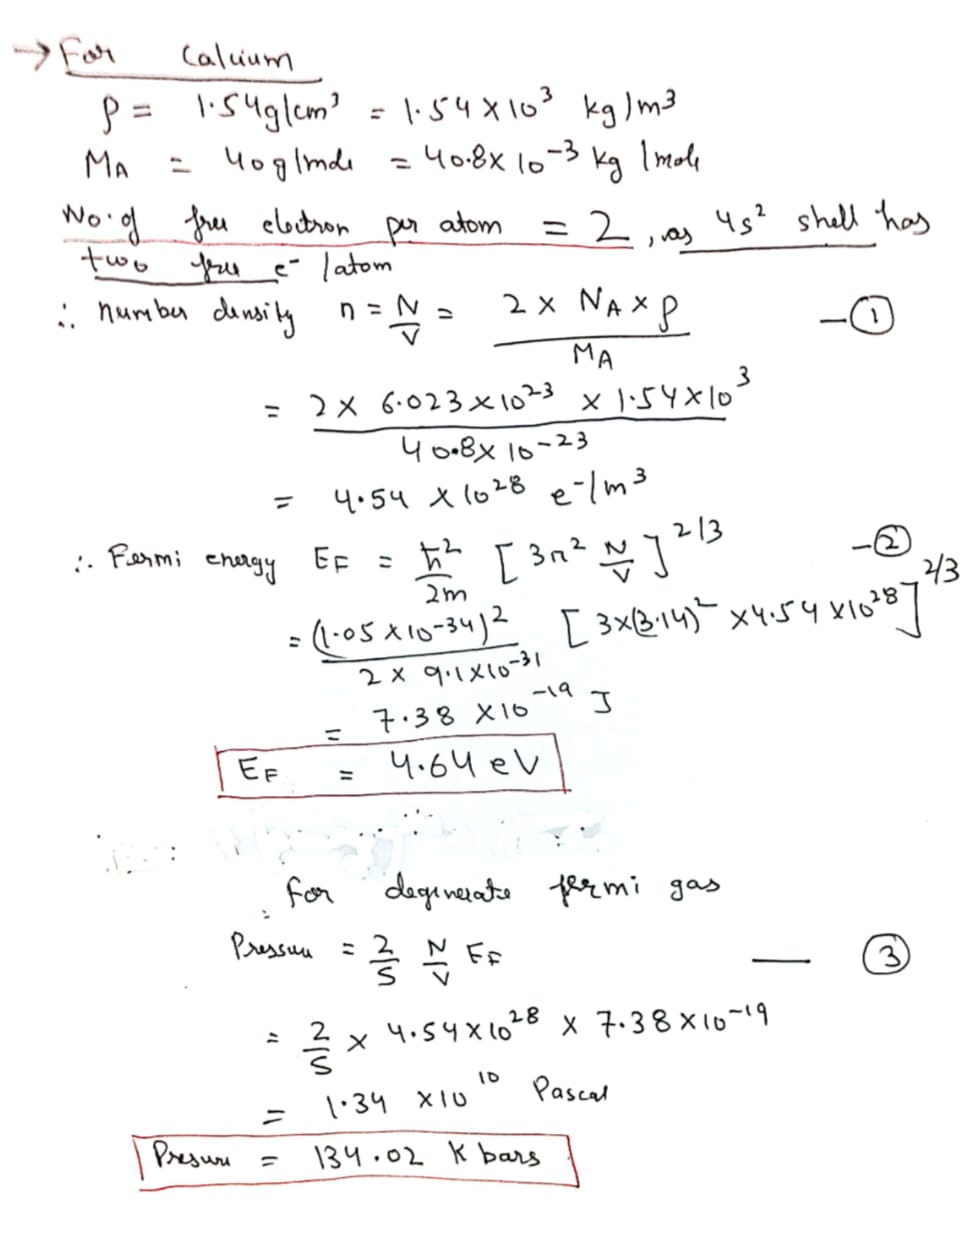 → For Calcium
ρ = 1.54g/cm³ = 1.54 × 10³ kg/m³
M_A = 40g/mole = 40.8 × 10⁻³ kg/mole
No. of free electron per atom = 2, as 4s² shell has
two free e⁻/atom
∴ number density n = N/V = (2 × N_A × ρ)/M_A — ①
= (2 × 6.023 × 10²³ × 1.54 × 10³)/(40.8 × 10⁻²³)
= 4.54 × 10²⁸ e⁻/m³
∴ Fermi energy E_F = ħ²/2m [3π² N/V]^2/3 — ②
= (1.05 × 10⁻³⁴)²/(2 × 9.1 × 10⁻³¹) [3×(3.14)² × 4.54 × 10²⁸]^2/3
= 7.38 × 10⁻¹⁹ J
E_F = 4.64 eV
for degenerate fermi gas
Pressure = 2/5 N/V E_F — ③
= 2/5 × 4.54 × 10²⁸ × 7.38 × 10⁻¹⁹
= 1.34 × 10¹⁰ Pascal
Presure = 134.02 K bars